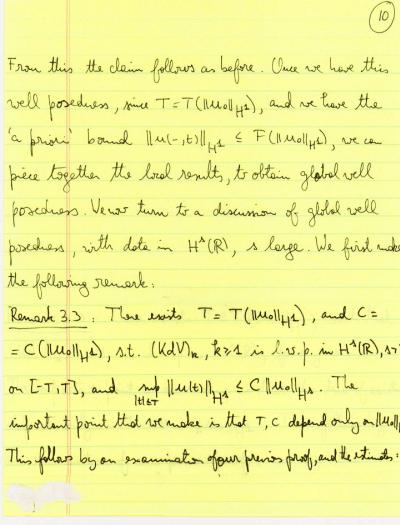 10
From this the claim follows as before. Once we have this
well posedness, since T = T(||u0||H1), and we have the
'a priori' bound ||u(-,t)||H1 ≤ F(||u0||H1), we can
piece together the local results, to obtain global well
posedness. We now turn to a discussion of global well
posedness, with data in Hs(R), s large. We first make
the following remark:
Remark 3.3: There exists T = T(||u0||H1), and C =
= C(||u0||H1), s.t. (KdV)k, k≥1 is l.w.p. in Hs(R), s>
on [-T,T], and sup|t|≤T ||u(t)||Hs ≤ C ||u0||Hs. The
important point that we make is that T, C depend only on ||u0||
This follows by an examination of our previous proof, and the estimates: